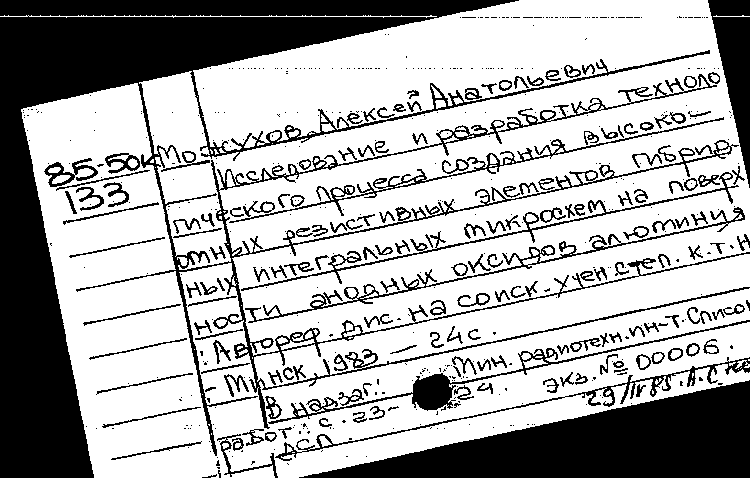 85-50к
133
Можухов, Алексей Анатольевич
Исследование и разработка техноло
гического процесса создания высоко-
омных резистивных элементов гибрид-
ных интегральных микросхем на поверх
ности анодных оксидов алюминия
: Автореф. дис. на соиск. учен. степ. к.т.н
- Минск, 1983. — 24 с.
В надзаг.: Мин. радиотехн. ин-т. Список
работ.: с. 23-24. Экз. № 00006.
ДСП 29/IV 85.